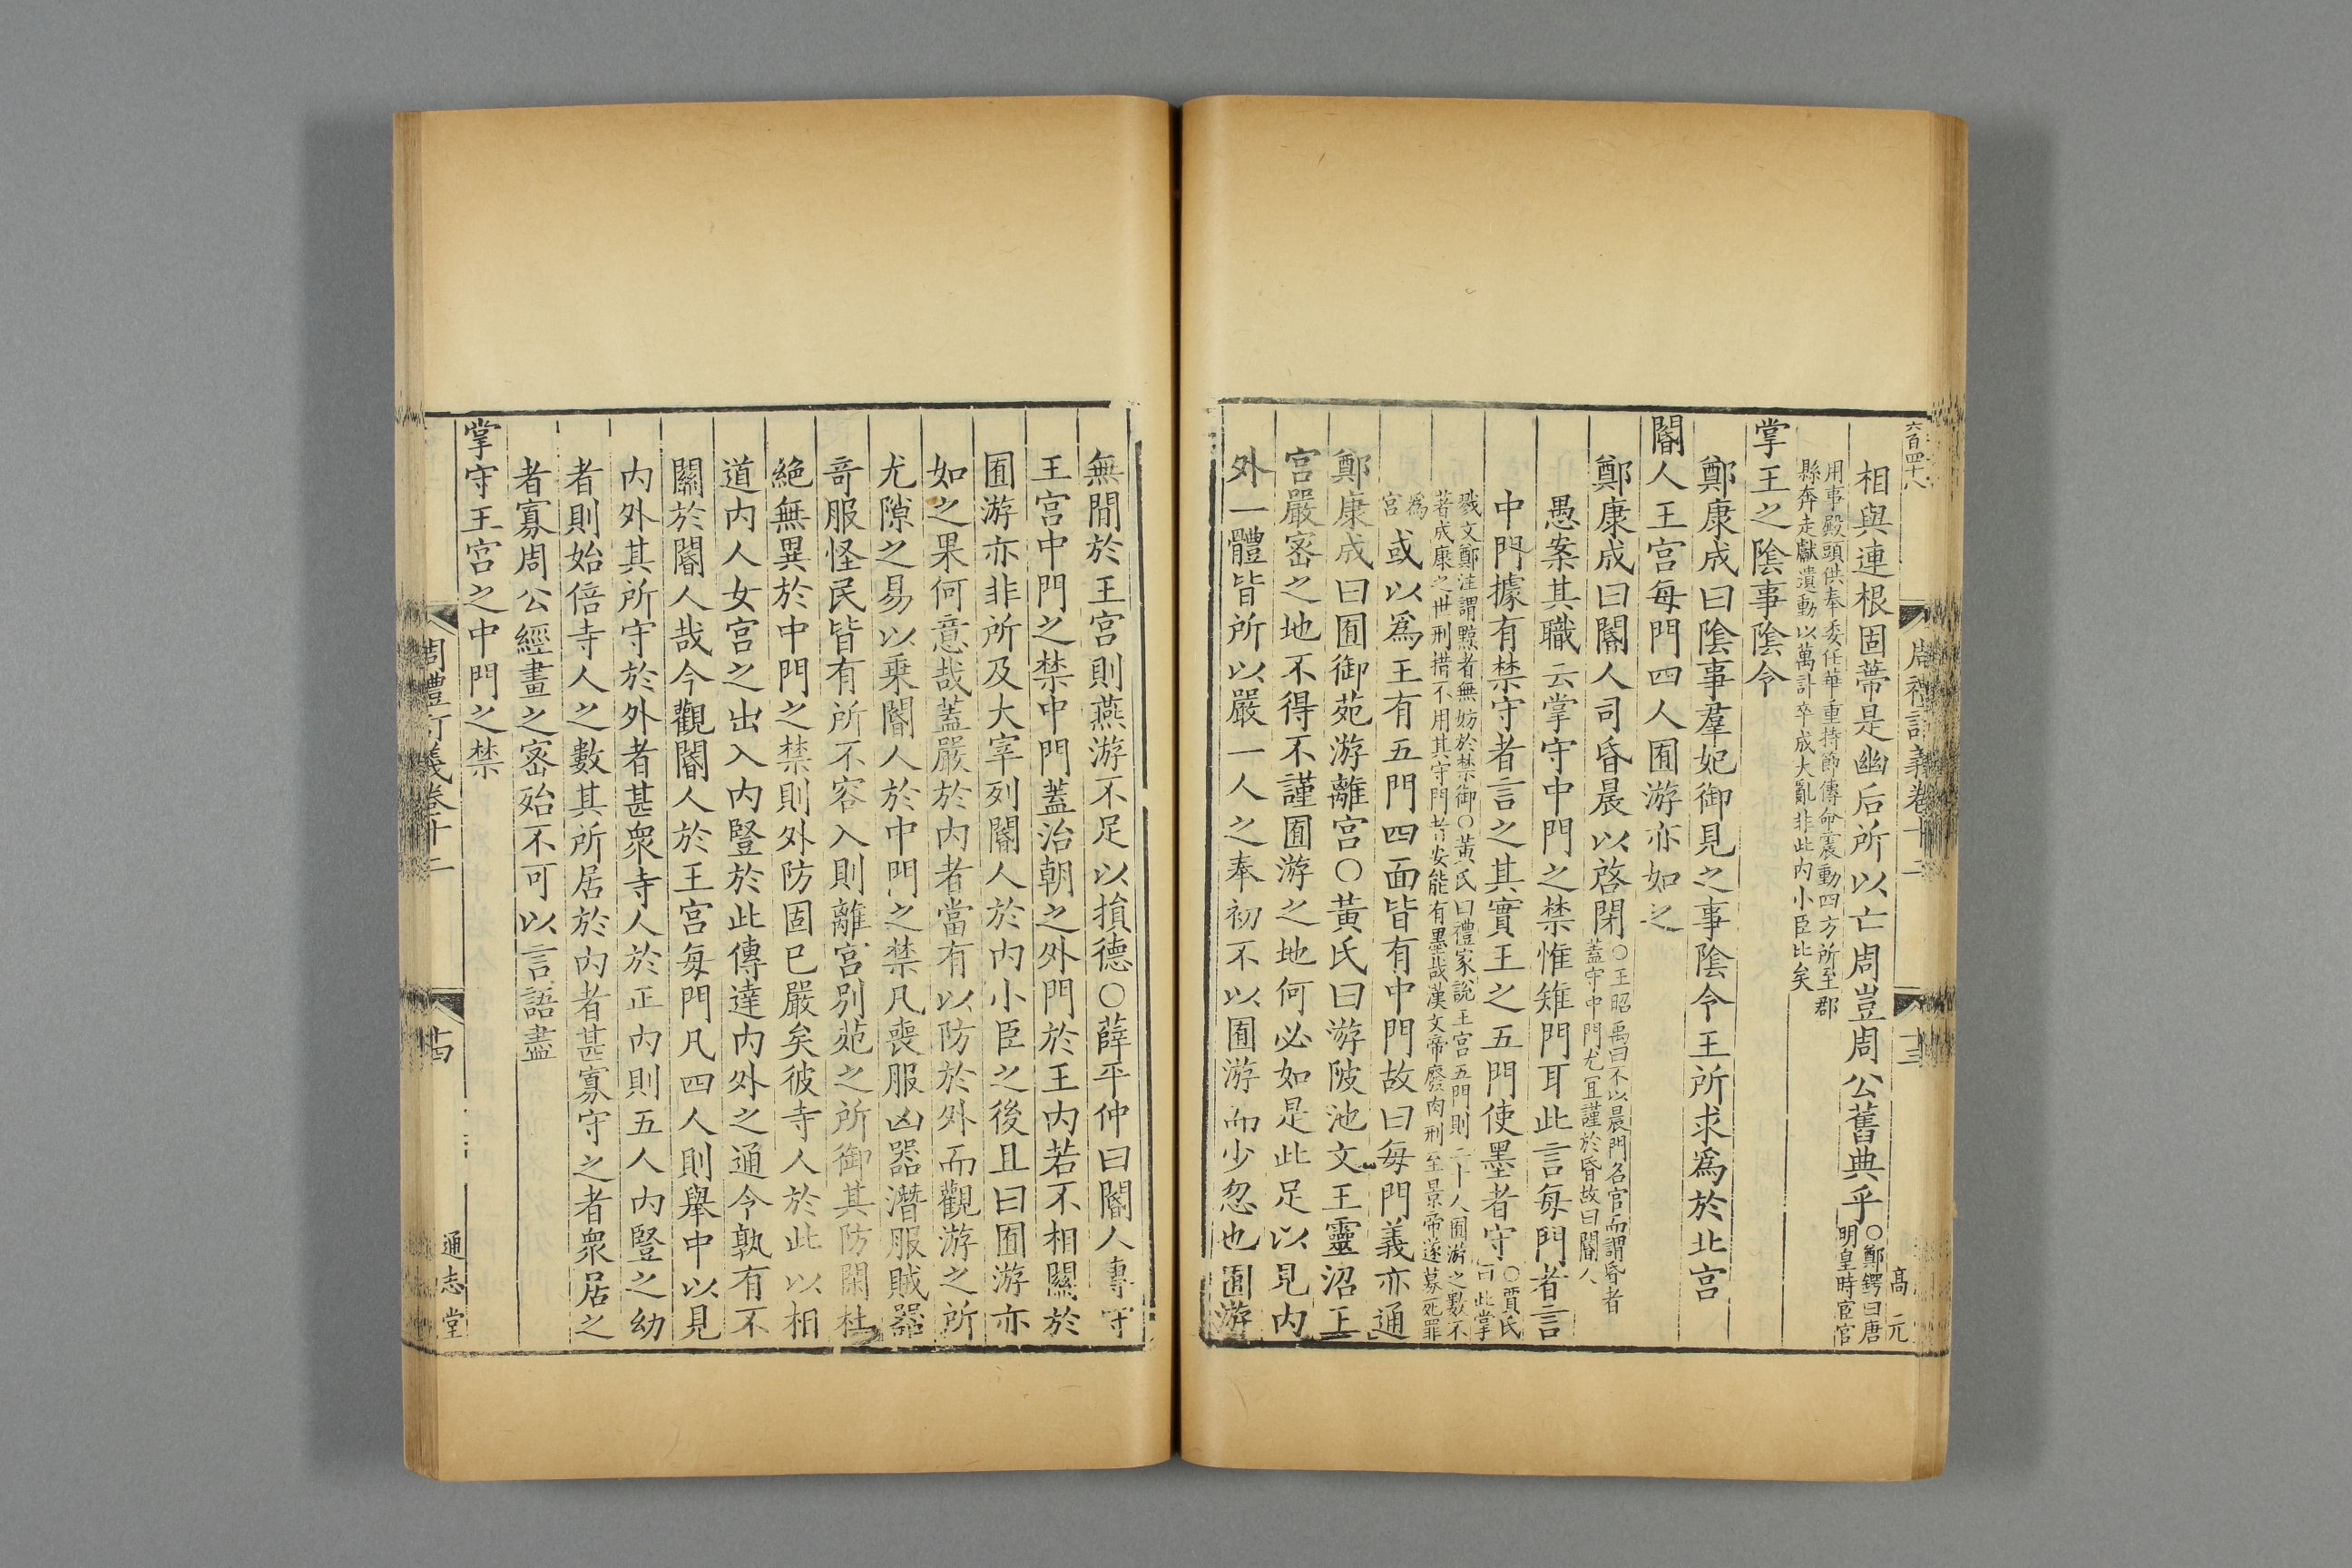 六百四十八
周禮訂義卷十二
十三
高元
相與連根固蔕是幽后所以亡周豈周公舊典乎○鄭鍔曰唐明皇時宦官
用事殿頭供奉委任華重持節傳命震動四方所至郡
縣奔走獻遺動以萬計卒成大亂非此內小臣比矣
掌王之陰事陰令
鄭康成曰陰事羣妃御見之事陰令王所求爲於北宮
閽人王宮每門四人囿游亦如之
鄭康成曰閽人司昏晨以啓閉○王昭禹曰不以晨門名官而謂昏者蓋守中門尤宜謹於昏故曰閽人
愚案其職云掌守中門之禁惟雉門耳此言每門者言
中門據有禁守者言之其實王之五門使墨者守○賈氏曰此掌
戮文鄭注謂黥者無妨於禁御○黃氏曰禮家說王宮五門則二十人囿游之數不
著成康之世刑措不用其守門者安能有墨哉漢文帝廢肉刑至景帝遂募死罪
爲宮或以爲王有五門四面皆有中門故曰每門義亦通
鄭康成曰囿御苑游離宮○黃氏曰游陂池文王靈沼王
宮嚴密之地不得不謹囿游之地何必如是此足以見內
外一體皆所以嚴一人之奉初不以囿游而少忽也囿游
無間於王宮則燕游不足以損德○薛平仲曰閽人專守
王宮中門之禁中門蓋治朝之外門於王內若不相關於
囿游亦非所及大宰列閽人於內小臣之後且曰囿游亦
如之果何意哉蓋嚴於內者當有以防於外而觀游之所
尤隙之易以乗閽人於中門之禁凡喪服凶器潛服賊器
竒服怪民皆有所不容入則離宮別苑之所御其防閑杜
絶無異於中門之禁則外防固已嚴矣彼寺人於此以相
道內人女宮之出入內豎於此傳達內外之通令孰有不
關於閽人哉今觀閽人於王宮每門凡四人則舉中以見
內外其所守於外者甚衆寺人於正內則五人內豎之幼
者則始倍寺人之數其所居於內者甚寡守之者衆居之
者寡周公經畫之密殆不可以言語盡
掌守王宮之中門之禁
周禮訂義卷十二
十四
通志堂